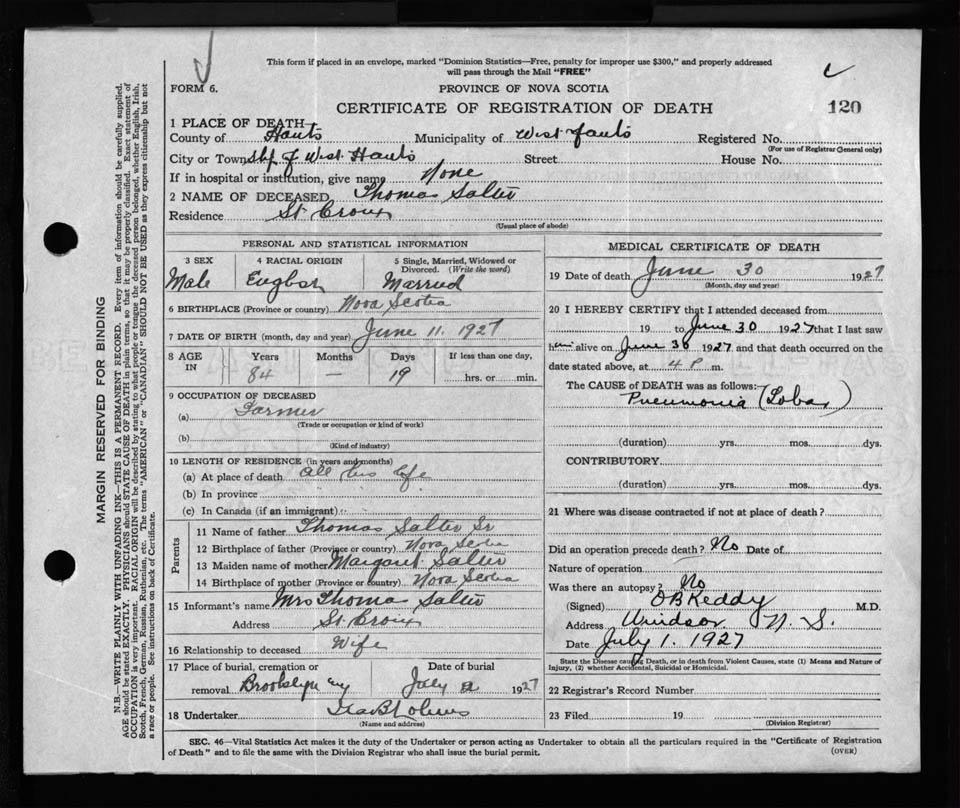 This form if placed in an envelope, marked "Dominion Statistics—Free, penalty for improper use $300," and properly addressed
will pass through the Mail "FREE"
FORM 6.
PROVINCE OF NOVA SCOTIA
CERTIFICATE OF REGISTRATION OF DEATH
120
1 PLACE OF DEATH
County of Hants Municipality of West Hants Registered No.
(For use of Registrar General only)
City or Town of West Hants Street House No.
If in hospital or institution, give name None
2 NAME OF DECEASED Thomas Salter
Residence St Croix
(Usual place of abode)
PERSONAL AND STATISTICAL INFORMATION
3 SEX 4 RACIAL ORIGIN 5 Single, Married, Widowed or
Divorced. (Write the word)
Male English Married
6 BIRTHPLACE (Province or country) Nova Scotia
7 DATE OF BIRTH (month, day and year) June 11. 1927
8 AGE IN Years Months Days If less than one day,
84 — 19 hrs. or min.
9 OCCUPATION OF DECEASED
(a) Farmer
(Trade or occupation or kind of work)
(b)
(Kind of industry)
10 LENGTH OF RESIDENCE (in years and months)
(a) At place of death All his life
(b) In province
(c) In Canada (if an immigrant)
Parents
11 Name of father Thomas Salter Sr
12 Birthplace of father (Province or country) Nova Scotia
13 Maiden name of mother Margaret Salter
14 Birthplace of mother (Province or country) Nova Scotia
15 Informant's name Mrs Thomas Salter
Address St. Croix
16 Relationship to deceased Wife
17 Place of burial, cremation or Date of burial
removal Brooklyn July 2 1927
18 Undertaker
(Name and address)
MEDICAL CERTIFICATE OF DEATH
19 Date of death June 30 1927
(Month, day and year)
20 I HEREBY CERTIFY that I attended deceased from
19 to June 30 1927 that I last saw
him alive on June 30 1927 and that death occurred on the
date stated above, at 4 P m.
The CAUSE of DEATH was as follows:
Pneumonia (Lobar)
(duration) yrs. mos. dys.
CONTRIBUTORY
(duration) yrs. mos. dys.
21 Where was disease contracted if not at place of death?
Did an operation precede death? No Date of
Nature of operation
Was there an autopsy? No
(Signed) O B Keddy M.D.
Address Windsor N. S.
Date July 1. 1927
State the Disease causing Death, or in death from Violent Causes, state (1) Means and Nature of
Injury, (2) whether Accidental, Suicidal or Homicidal.
22 Registrar's Record Number
23 Filed 19
(Division Registrar)
SEC. 46—Vital Statistics Act makes it the duty of the Undertaker or person acting as Undertaker to obtain all the particulars required in the "Certificate of Registration
of Death" and to file the same with the Division Registrar who shall issue the burial permit.
(OVER)
MARGIN RESERVED FOR BINDING
N.B.—WRITE PLAINLY WITH UNFADING INK—THIS IS A PERMANENT RECORD. Every item of information should be carefully supplied.
AGE should be stated EXACTLY. PHYSICIANS should STATE CAUSE OF DEATH in plain terms, so that it may be properly classified. Exact statement of
OCCUPATION is very important. RACIAL ORIGIN will be described by stating to what people or tongue the deceased person belonged, whether English, Irish,
Scotch, French, German, Russian, Ruthenian, etc. The terms "AMERICAN" or "CANADIAN" SHOULD NOT BE USED as they express citizenship but not
a race or people. See instructions on back of Certificate.